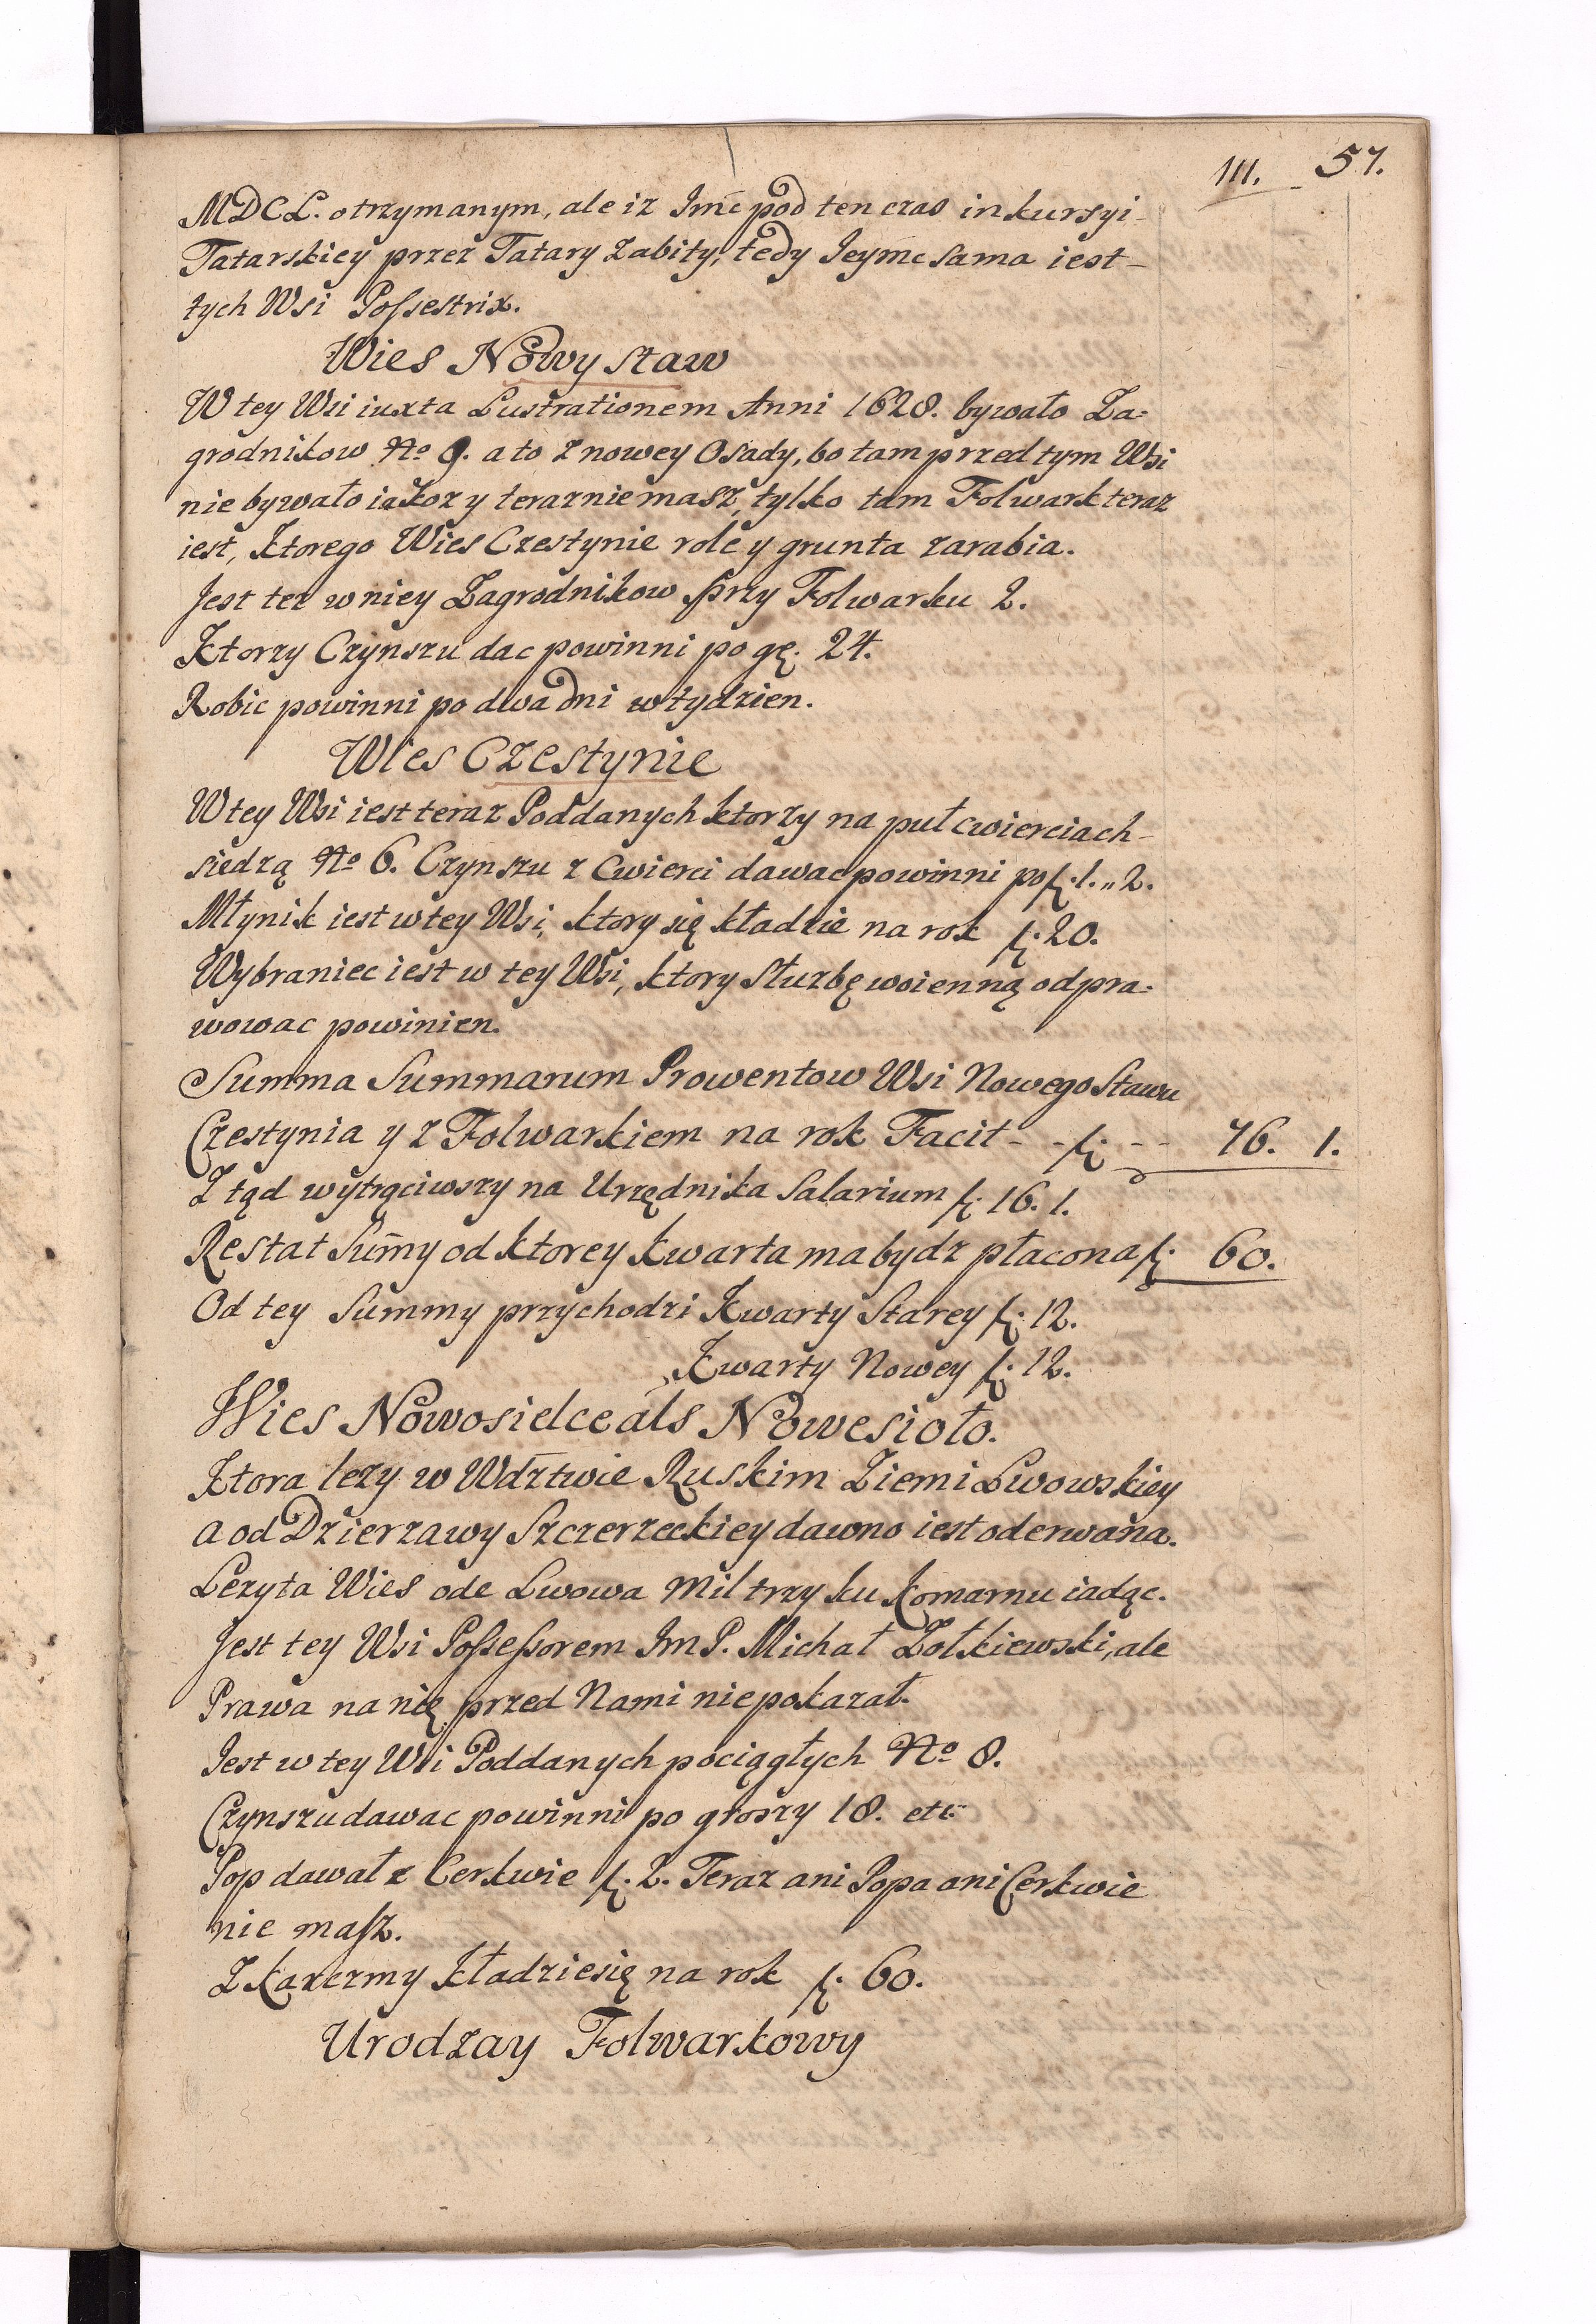 111. 57.
MDCL. otrzymanym, ale iz Imć pod ten czas inkursyi
Tatarskiey przez Tatary zabity, tedy Ieymc sama iest
tych Wsi Possestrix.
Wies Nowy staw
W tey Wsi iuxta Lustrationem Anni 1628. bywało Za=
grodnikow No 9. a to z nowey Osady, bo tam przed tym Wsi
nie bywało iakoz y teraz nie masz, tylko tam Folwark teraz
iest, Ktorego Wies Czestynie role y grunta zarabia.
Jest tez w niey Zagrodnikow przy Folwarku 2.
Ktorzy Czynszu dac powinni po gę. 24.
Robic powinni po dwa dni w tydzien.
Wies Czestynie
W tey Wsi iest teraz Poddanych ktorzy na puł cwierciach
siedzą No 6. Czynszu z Cwierci dawac powinni po f. 1. „ 2.
Młynik iest w tey Wsi, ktory się kładzie na rok f. 20.
Wybraniec iest w tey Wsi, ktory słuzbę woienną odpra=
wowac powinien.
Summa Summarum Prowentow Wsi Nowego Stawu
Czestynia y z Folwarkiem na rok Facit - - f. - - 76. 1.
Z tąd wytrąciwszy na Urzędnika Salarium f. 16. 1.
Restat Sum̄y od Ktorey Kwarta ma bydz płacona f. 60.
Od tey Summy przychodzi Kwarty Starey f. 12.
Kwarty Nowey f. 12.
Wies Nowosielce als Nowesioło.
Ktora lezy w Wdztwie Ruskim Ziemi Lwowskiey
a od Dzierzawy Szczerzeckiey dawno iest oderwana.
Lezy ta Wies ode Lwowa mil trzy ku Komarnu iadąc.
Jest tey Wsi Possessorem Im P. Michał Zołkiewski, ale
Prawa na nię przed Nami nie pokazał.
Jest w tey Wsi Poddanych pociągłych No 8.
Czynszu dawac powinni po groszy 18. etc.
Pop dawał z Cerkwie f. 2. Teraz ani Popa ani Cerkwie
nie masz.
Z Karczmy kładzie się na rok f. 60.
Urodzay Folwarkowy